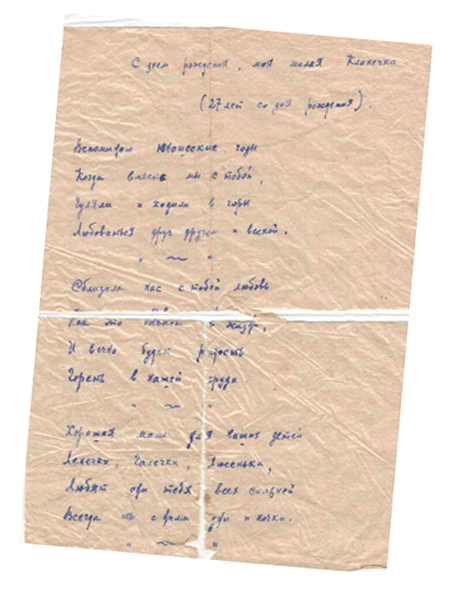 С днем рождения, моя милая Кланечка.
(27 лет со дня рождения).
Вспоминаю юношеские годы
Когда вместе мы с тобой,
Гуляли и ходили в горы
Любоваться друг другом и весной.
" ~ "
Сблизила нас с тобой любовь
Как это
И вечно будет радость
Гореть в нашей груди
" ~ "
Хорошая мама для наших детей
Ленечки, Галечки, Люсеньки,
Любят они тебя всех сильней
Всегда и ночки.
" ~ "